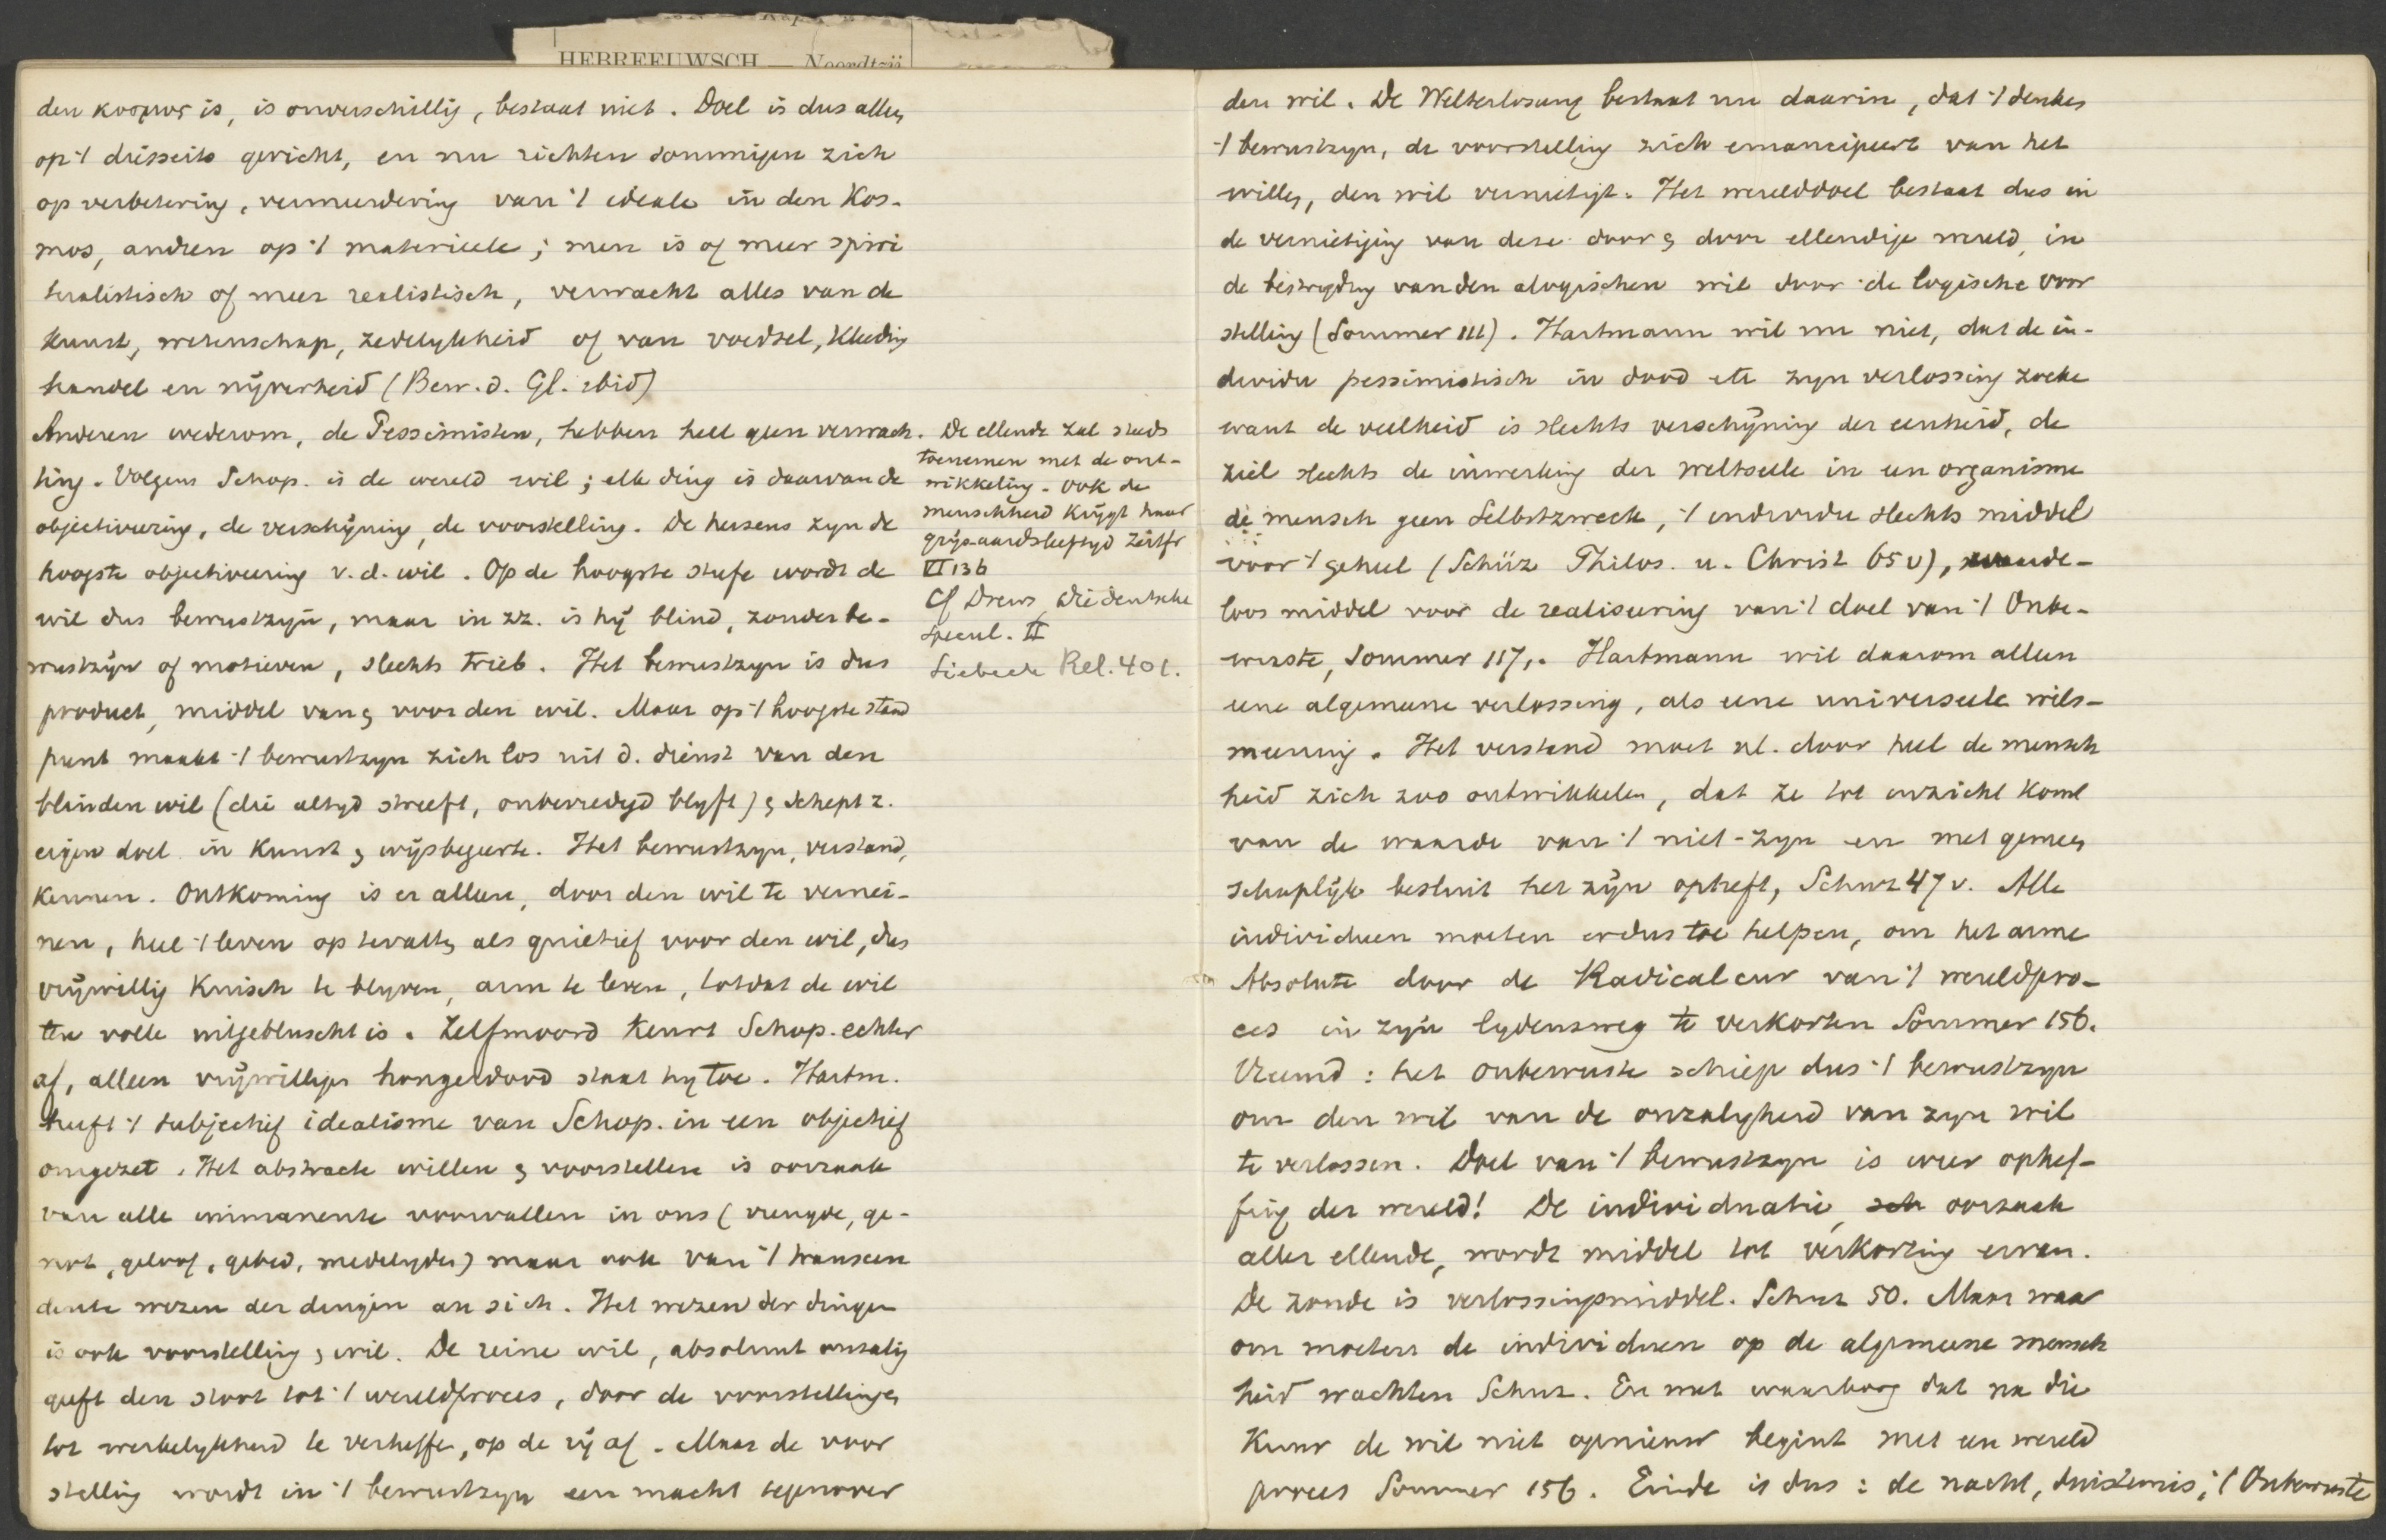 HEBREEUWSCH — Noordtzij
den κοσμος is, is onverschillig, bestaat niet. Doel is dus alles
op 't diesseits gericht, en nu richten sommigen zich
op verbetering, vermeerdering van 't ideale in den Kos-
mos, andren op 't materieele; men is of meer spiri
tualistisch of meer realistisch, verwacht alles van de
kunst, wetenschap, zedelijkheid of van voedsel, kleeding
handel en nijverheid (Bew. d. Gl. ibid)
Anderen wederom, de Pessimisten, hebben heel geen verwach-
ting. Volgens Schop. is de wereld wil; elk ding is daarvan de
objectiveering, de verschijning, de voorstelling. De hersens zyn de
hoogste objectiveering v. d. wil. Op de hoogste stufe wordt de
wil dus bewustzyn, maar in zz. is hij blind, zonder be-
wustzijn of motieven, slechts trieb. Het bewustzyn is dus
product, middel van & voor den wil. Maar op 't hoogste stand
punt maakt 't bewustzyn zich los uit d. dienst van den
blinden wil (die altyd streeft, onbevredigd blyft) & schept z.
eigen doel in Kunst & wijsbegeerte. Het bewustzyn, verstand,
kennen. Ontkoming is er alleen, door den wil te vernei-
nen, heel 't leven op te vatten als quietief voor den wil, dus
vrijwillig Kuisch te blyven, arm te leven, totdat de wil
ten volle uitgebluscht is. Zelfmoord keurt Schop. echter
af, alleen vrijwilligen hongerdood staat hy toe. Hartm.
heeft 't subjectief idealisme van Schop. in een objectief
omgezet. Het abstracte willen & voorstellen is oorzaak
van alle immanente voorvallen in ons (vreugde, ge-
not, geloof, gebed, medelyden) maar ook van 't transcen
dente wezen der dingen an sich. Het wezen der dingen
is ook voorstelling & wil. De reine wil, absoluut onzalig
geeft den stoot tot 't wereldproces, door de voorstellingen
tot werkelykheid te verheffen, op de rij af. Maar de voor
stelling wordt in 't bewustzyn een macht tegenover
De ellende zal steeds
toenemen met de ont-
wikkeling. ook de
menschheid krijgt haar
grijsaardsleeftyd Zeitfr
VI 136
Cf Drews, die deutsche
Specul. II
Siebeck Rel. 401.
den wil. De Welterlosung bestaat nu daarin, dat 't denken
't bewustzyn, de voorstelling zich emancipeert van het
willen, den wil vernietigt. Het werelddoel bestaat dus in
de vernietiging van deze door & door ellendige wereld, in
de bestryding van den alogischen wil door de logische voor
stelling (Sommer 111). Hartmann wil nu niet, dat de in-
dividu pessimistisch in dood etc zyn verlossing zoeke
want de veelheid is slechts verschijning der eenheid, de
ziel slechts de inwerking der weltseele in een organisme
de mensch geen Selbstzweck, 't individu slechts middel
voor 't geheel (Schüz Philos. u. Christ 65 v), waarde-
loos middel voor de realiseering van 't doel van 't Onbe-
wuste, Sommer 117,. Hartmann wil daarom alleen
eene algemeene verlossing, als eene universeele wils-
neening. Het verstand moet nl. door heel de mensch
heid zich zoo ontwikkelen, dat ze tot inzicht komt
van de waarde van 't niet-zyn en met gemeen
schaplijk besluit het zijn opheft, Schuz 47 v. Alle
individuen moeten er dus toe helpen, om het arme
Absolute door de Radicalcur van 't wereldpro-
ces in zyn lydensweg te verkorten Sommer 156.
Vreemd: het onbewuste schiep dus 't bewustzyn
om den wil van de onzaligheid van zyn wil
te verlossen. Doel van 't bewustzyn is weer ophef-
fing der wereld! De individuatie, oorzaak
aller ellende, wordt middel tot verkorting ervan.
De zonde is verlossingsmiddel. Schuz 50. Maar waar
om moeten de individuen op de algemeene mensch
heid wachten Schuz. En wat waarborg dat na die
Kuur de wil niet opnieuw begint met een wereld
proces Sommer 156. Einde is dus: de nacht, duisternis, 't Onbewuste